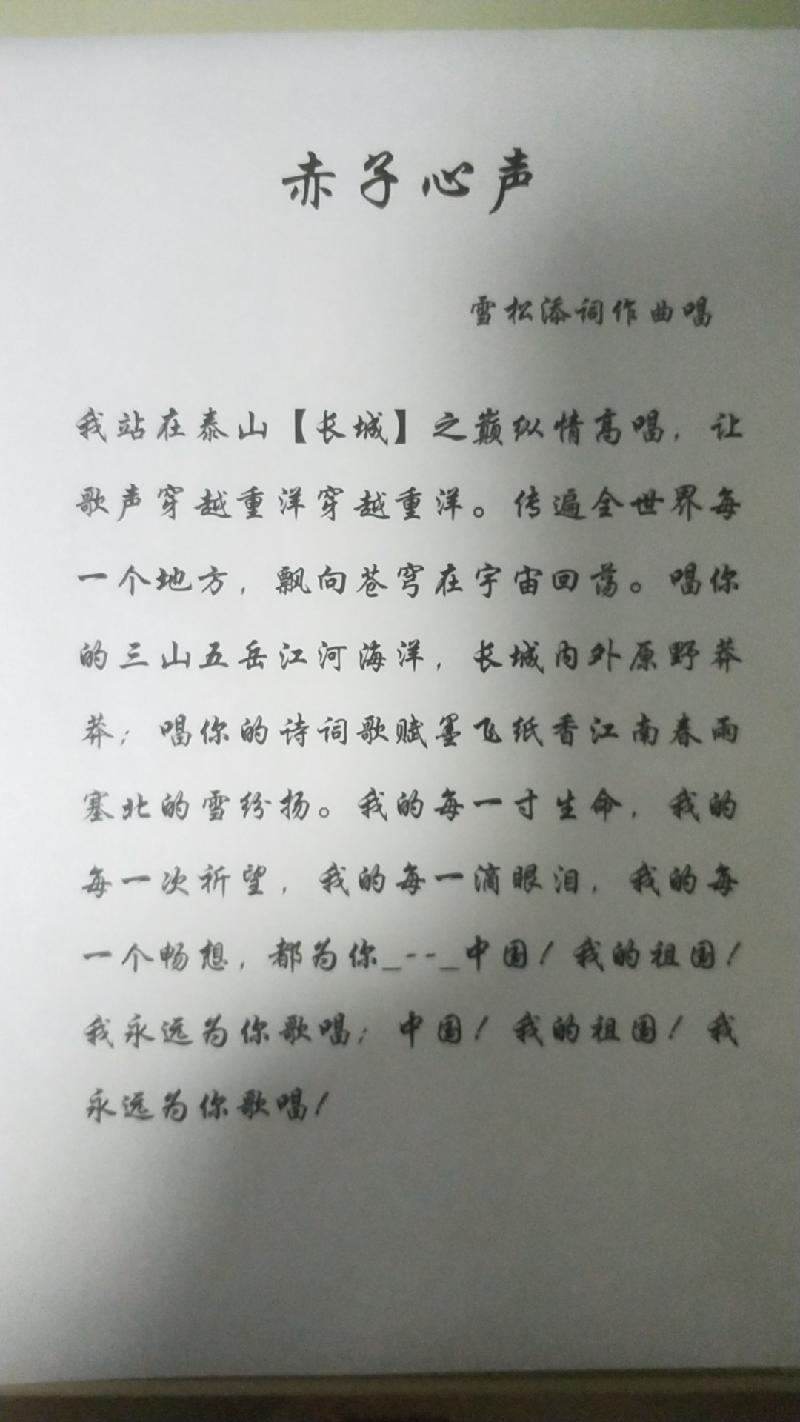 赤子心声
雪松添词作曲唱
我站在泰山【长城】之巅纵情高唱，让
歌声穿越重洋穿越重洋。传遍全世界每
一个地方，飘向苍穹在宇宙回荡。唱你
的三山五岳江河海洋，长城内外原野莽
莽；唱你的诗词歌赋墨飞纸香江南春雨
塞北的雪纷扬。我的每一寸生命，我的
每一次祈望，我的每一滴眼泪，我的每
一个畅想，都为你_--_中国！我的祖国！
我永远为你歌唱；中国！我的祖国！我
永远为你歌唱！